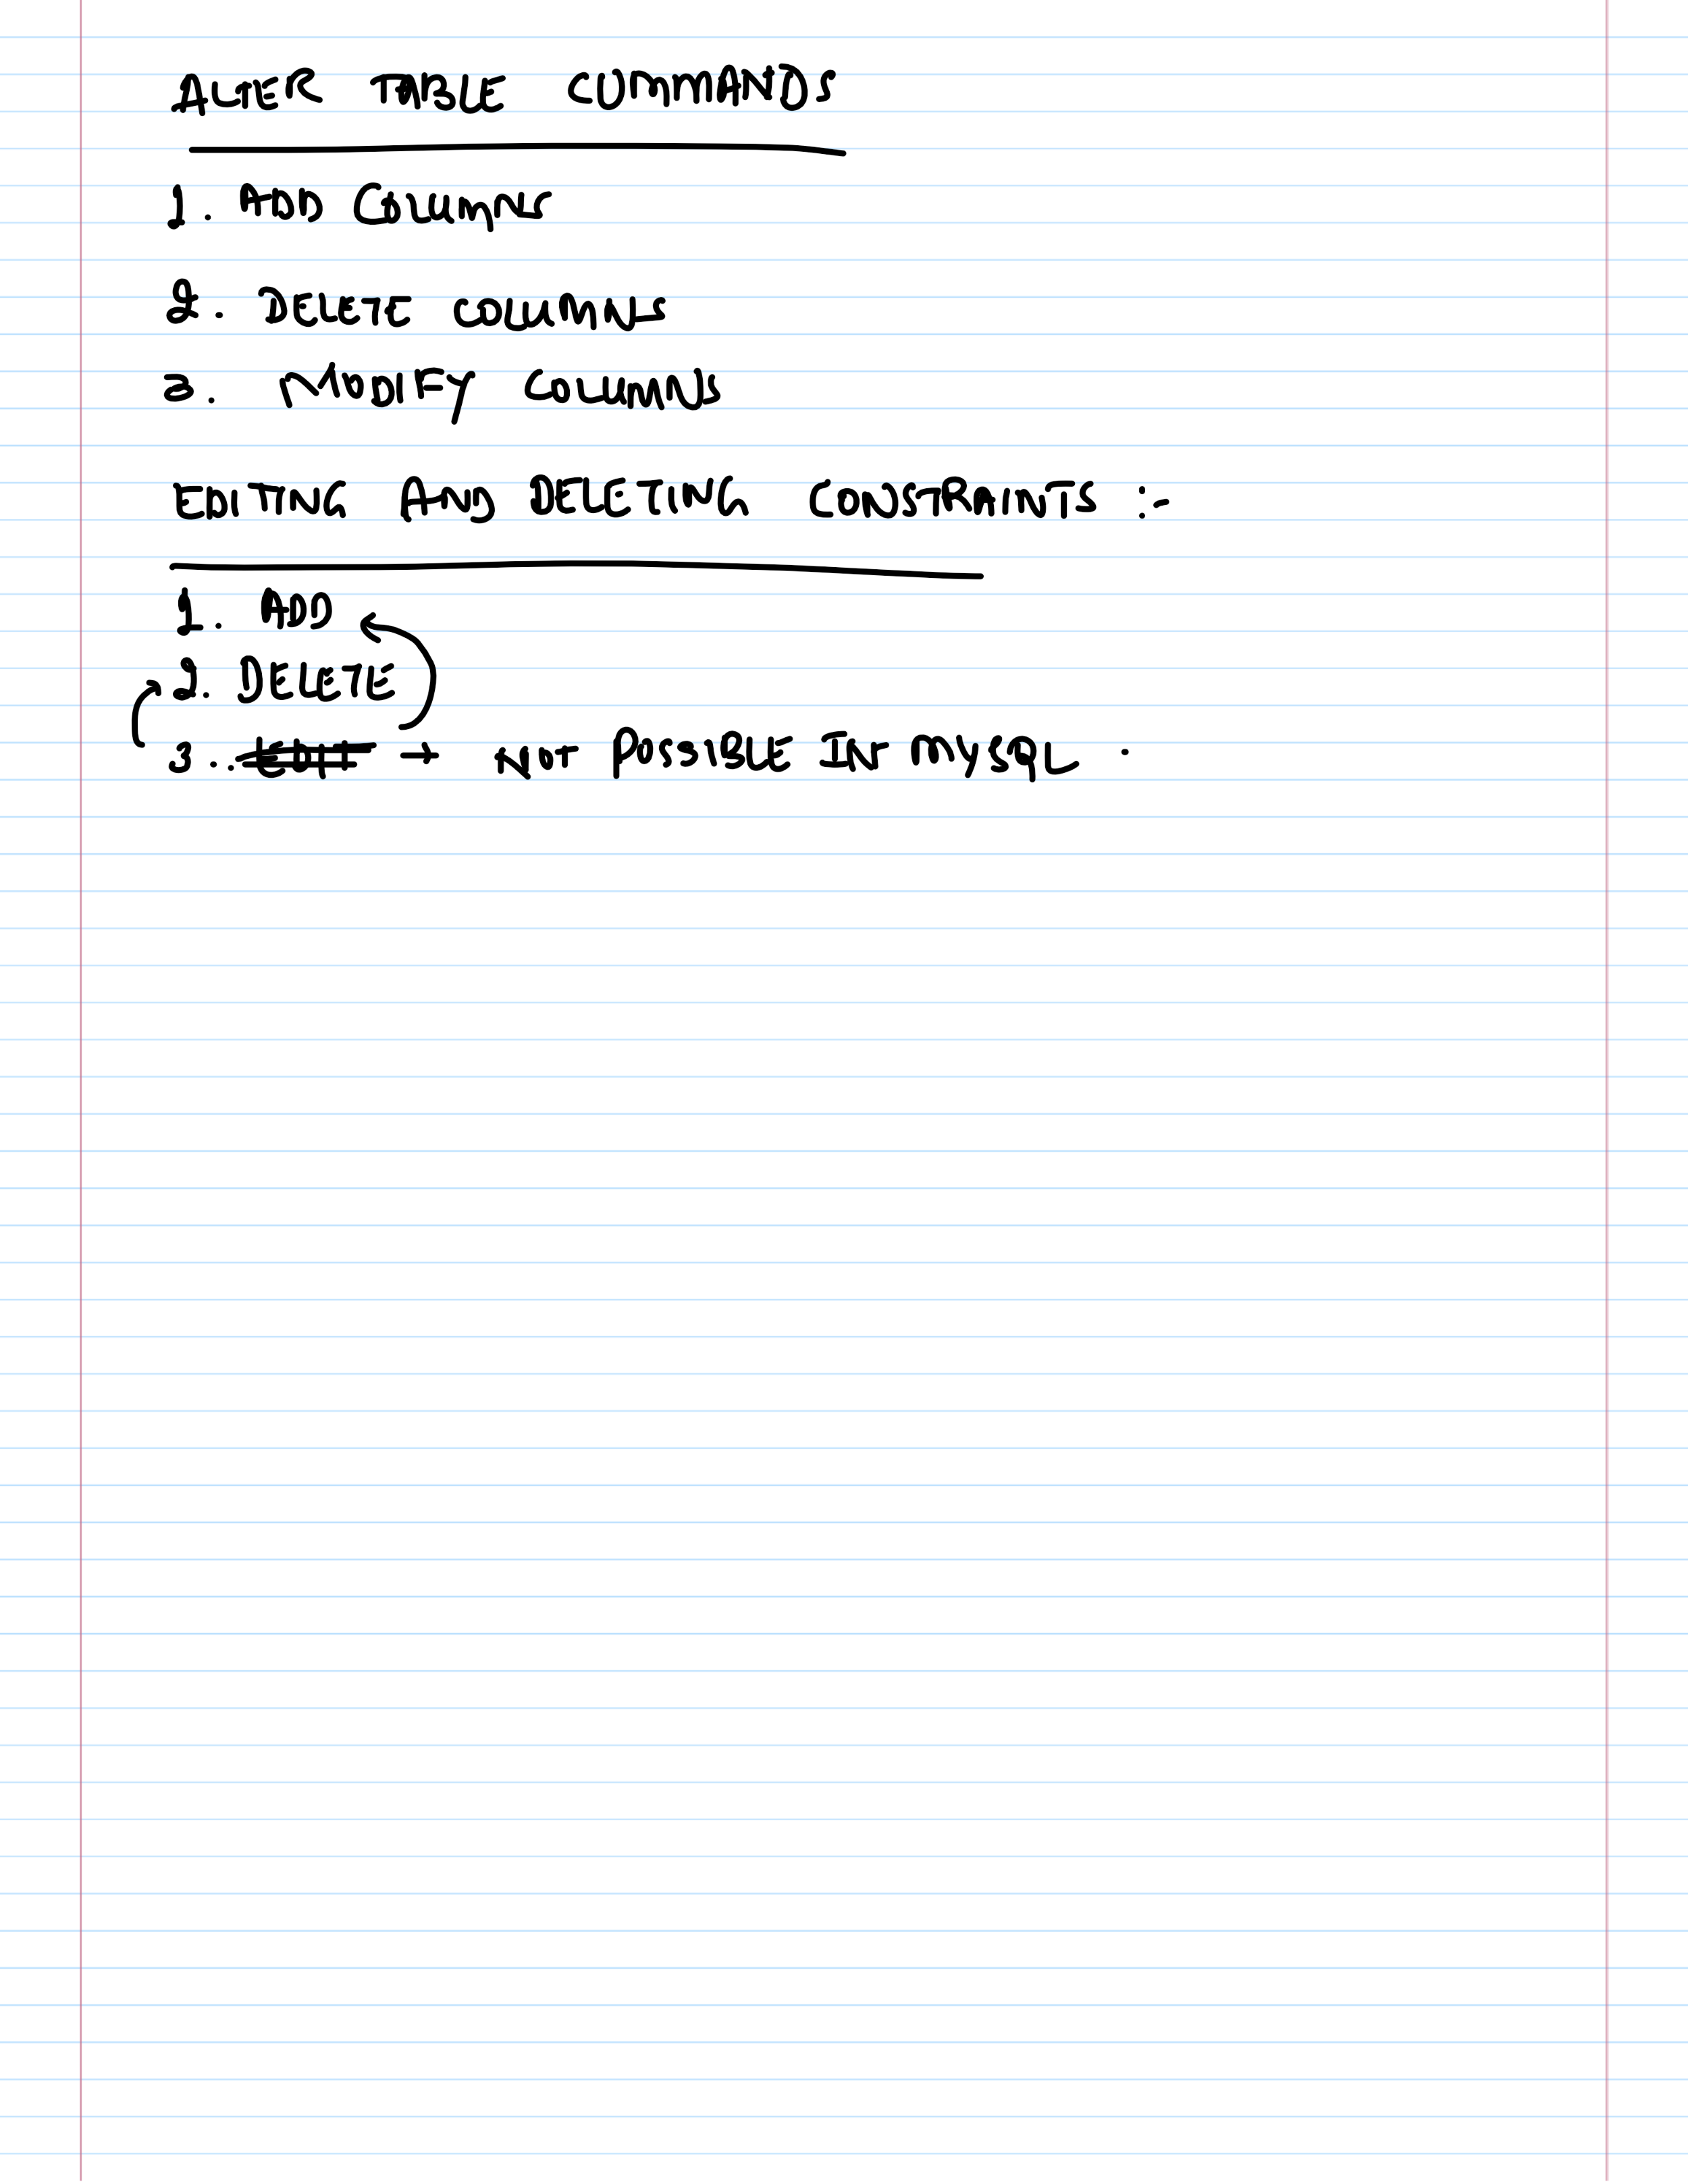 ALTER TABLE COMMANDS
1. ADD COLUMNS
2. DELETE COLUMNS
3. MODIFY COLUMNS
EDITING AND DELETING CONSTRAINTS :-
1. ADD
2. DELETE
3. . EDIT → NOT POSSIBLE IN MYSQL .